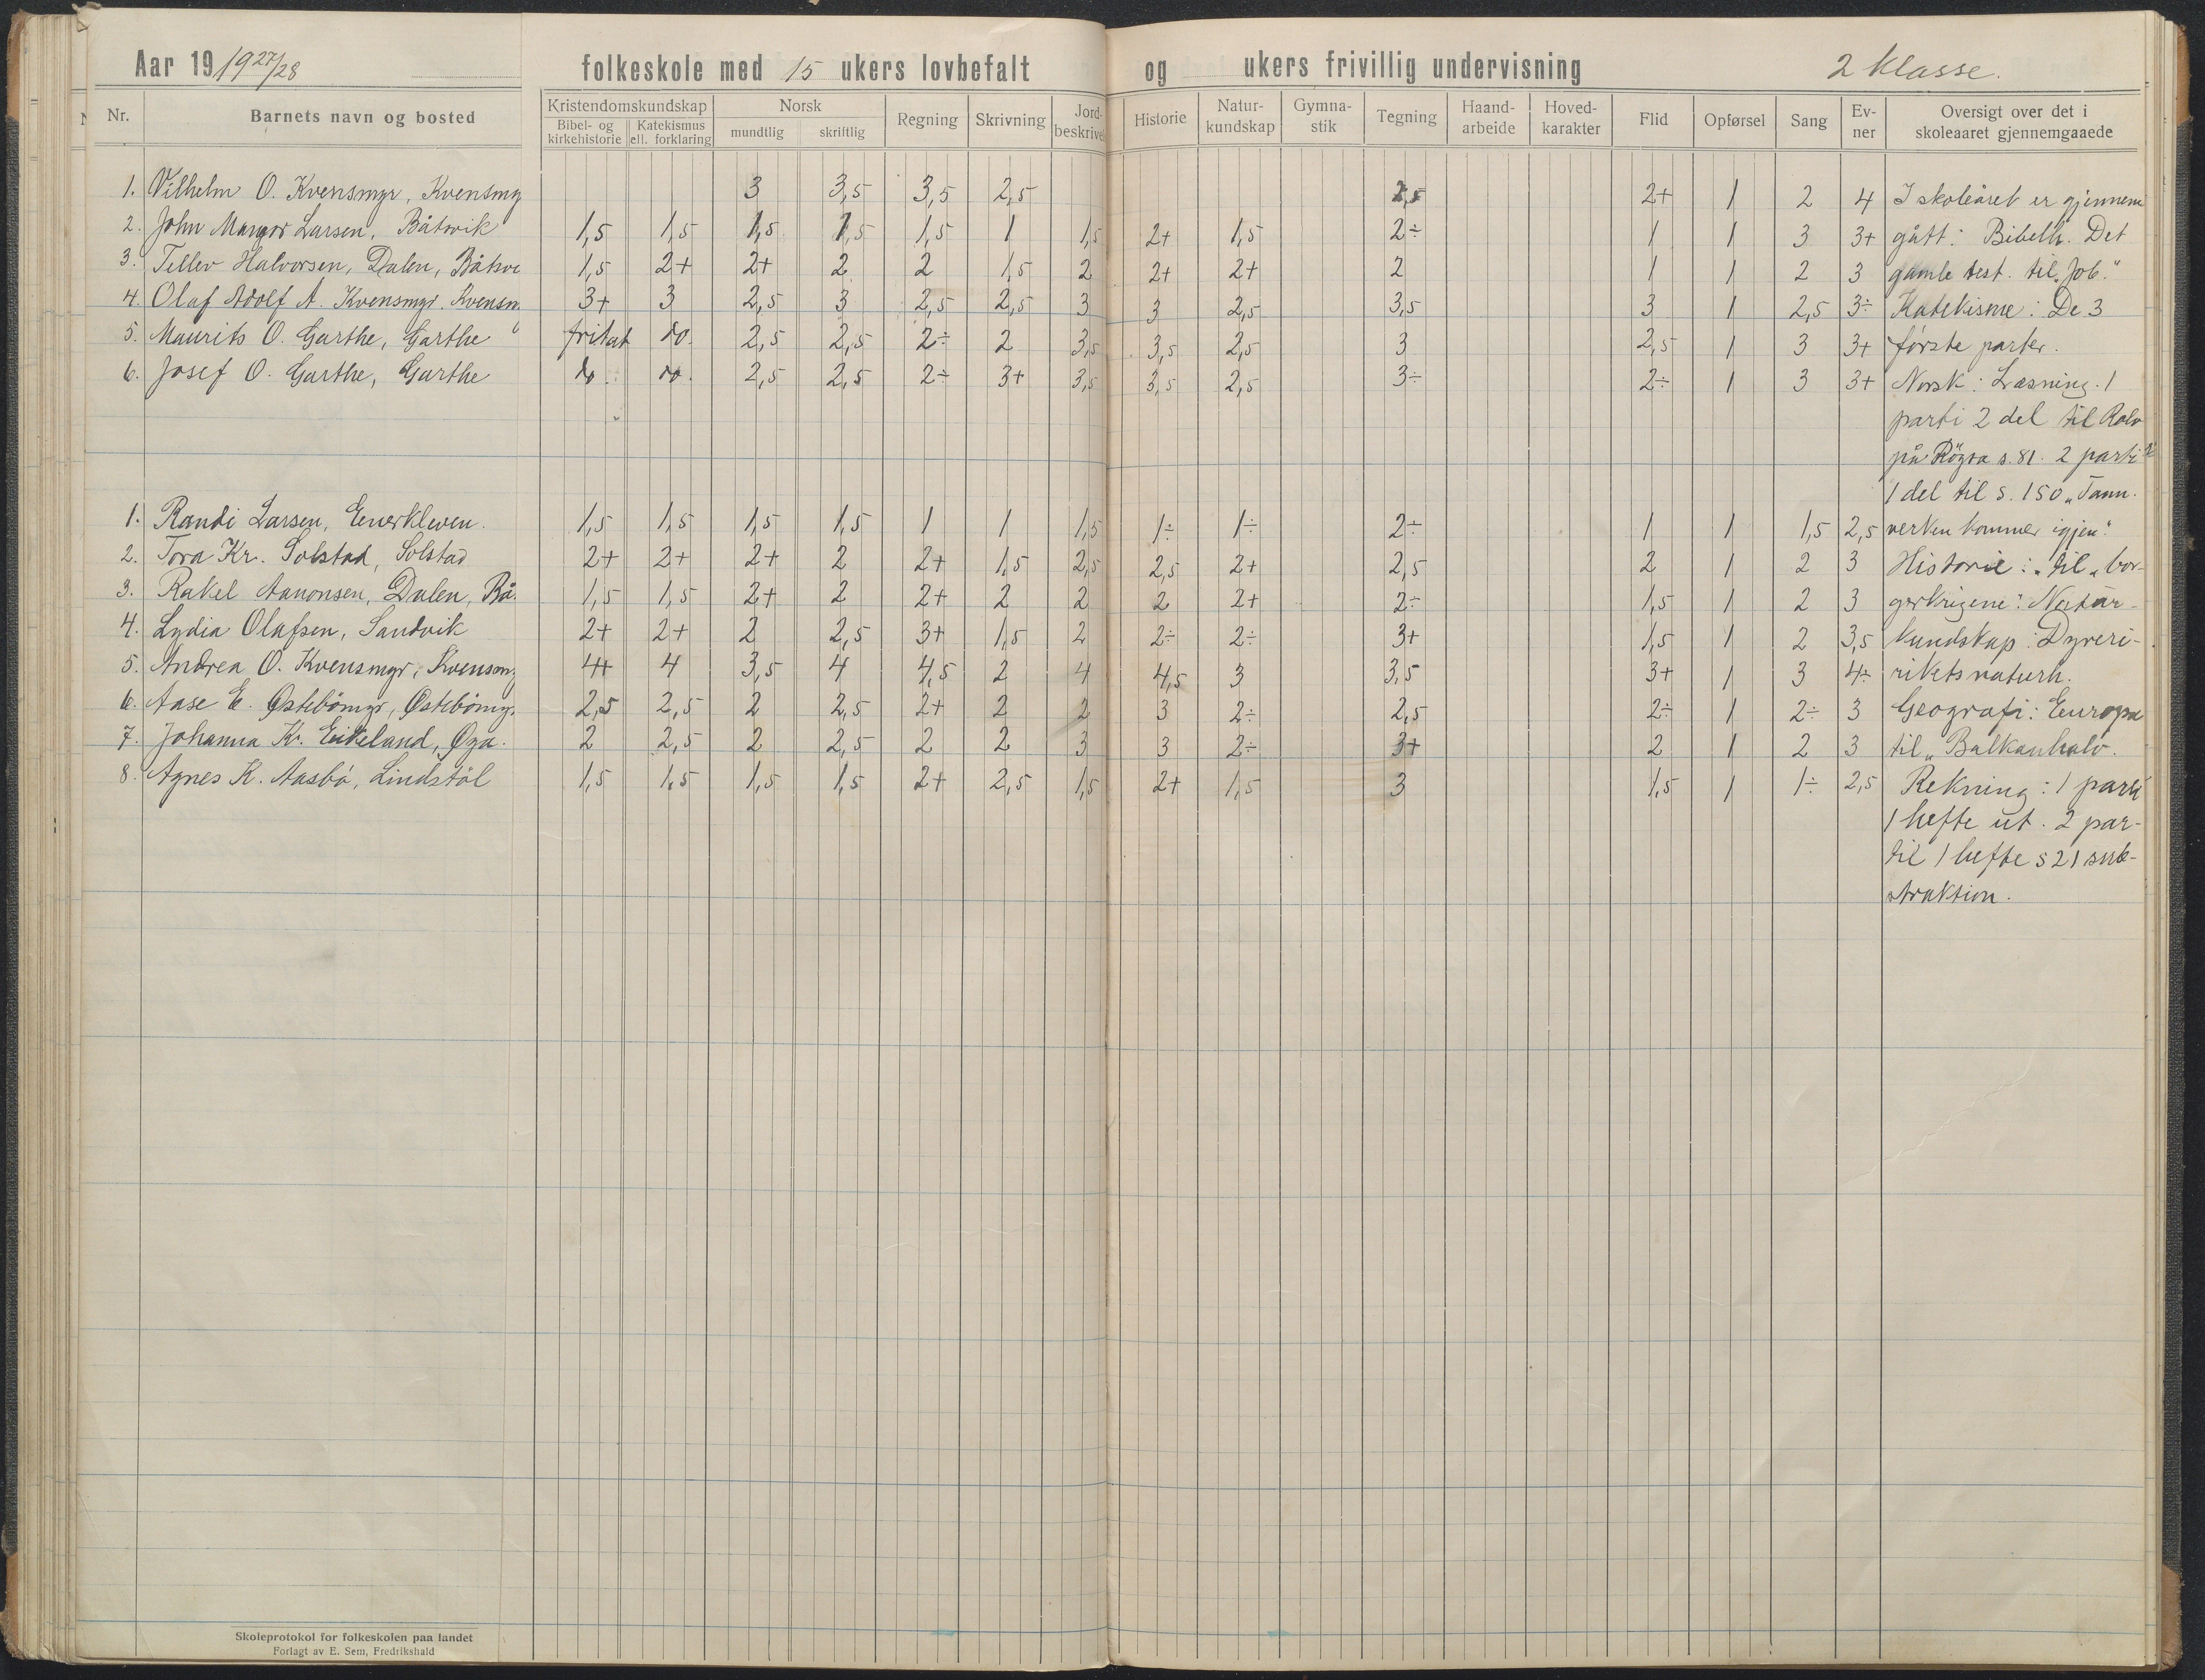 Aar 19 1927/28 folkeskole med 15 ukers lovbefalt og ukers frivillig undervisning 2 klasse.
Nr. Barnets navn og bosted Kristendomskundskap Bibel- og kirkehistorie Katekismus ell. forklaring Norsk mundtlig skriftlig Regning Skrivning Jord-beskrivel Historie Natur-kundskap Gymna-stik Tegning Haand-arbeide Hoved-karakter Flid Opførsel Sang Ev-ner Oversigt over det i skoleaaret gjennemgaaede
1. Vilhelm O. Kvensmyr, Kvensmy 3 3,5 3,5 2,5 2,5 2+ 1 2 4 I skoleåret er gjennem
2. John Margor Larsen, Båtsvik 1,5 1,5 1,5 1,5 1,5 1 1,5 2+ 1,5 2÷ 1 1 3 3+ gått: Bibelh. Det
3. Tellev Halvorsen, Dalen, Båtsv 1,5 2+ 2+ 2 2 1,5 2 2+ 2+ 2 1 1 2 3 gamle test. til „Job."
4. Olaf Adolf A. Kvensmyr. Kvensm. 3+ 3 2,5 3 2,5 2,5 3 3 2,5 3,5 3 1 2,5 3÷ Katekisme: De 3
5. Maurits O. Garthe, Garthe fritat do. 2,5 2,5 2÷ 2 3,5 3,5 2,5 3 2,5 1 3 3+ første parter.
6. Josef O. Garthe, Garthe do. do. 2,5 2,5 2÷ 3+ 3,5 3,5 2,5 3÷ 2÷ 1 3 3+ Norsk: Læsning. 1
parti 2 del til Rolv
på Røgva s. 81. 2 parti
1 del til s. 150 „Tann-
1. Randi Larsen, Eenerkleven. 1,5 1,5 1,5 1,5 1 1 1,5 1÷ 1÷ 2÷ 1 1 1,5 2,5 verken kommer igjen."
2. Tora Kr. Solstad, Solstad 2+ 2+ 2+ 2 2+ 1,5 2,5 2,5 2+ 2,5 2 1 2 3 Historie: „til „bor-
3. Rakel Aanonsen, Dalen, Bå. 1,5 1,5 2+ 2 2+ 2 2 2 2+ 2÷ 1,5 1 2 3 gerkrigene". Natur-
4. Lydia Olafsen, Sandvik 2+ 2+ 2 2,5 3+ 1,5 2 2÷ 2÷ 3+ 1,5 1 2 3,5 kundskap: Dyreri-
5. Andrea O. Kvensmyr, Kvensmy 4+ 4 3,5 4 4,5 2 4 4,5 3 3,5 3+ 1 3 4÷ rikets naturh.
6. Aase E. Østebømyr, Østebømyr 2,5 2,5 2 2,5 2+ 2 2 3 2÷ 2,5 2÷ 1 2÷ 3 Geografi: Europa
7. Johanna Kr. Eikeland, Øya. 2 2,5 2 2,5 2 2 3 3 2÷ 3+ 2 1 2 3 til „Balkanhalv.
8. Agnes K. Aasbø, Lindstøl 1,5 1,5 1,5 1,5 2+ 2,5 1,5 2+ 1,5 3 1,5 1 1÷ 2,5 Rekning: 1 parti
1 hefte ut. 2 par-
til 1 hefte s 21 sub-
straktion.
Skoleprotokol for folkeskolen paa landet
Forlagt av E. Sem, Fredrikshald